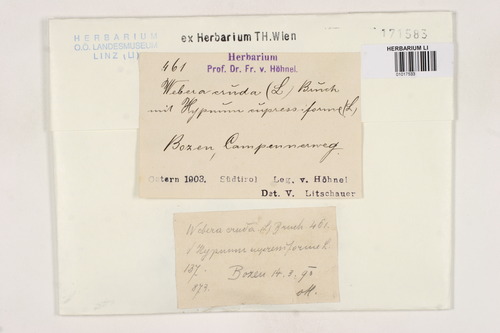 HERBARIUM
O.Ö. LANDESMUSEUM
LINZ (LI)
ex Herbarium TH.Wien
171583
HERBARIUM LI
01017593
Herbarium
Prof. Dr. Fr. v. Höhnel.
461
Webera cruda (L.) Bruch
mit Hypnum cupressiforme (L.)
Bozen, Campennerweg.
Ostern 1903. Südtirol Leg. v. Höhnel
Det. V. Litschauer
Webera cruda L. Bruch 461.
Hypnum cupressiforme L.
Bozen 14.